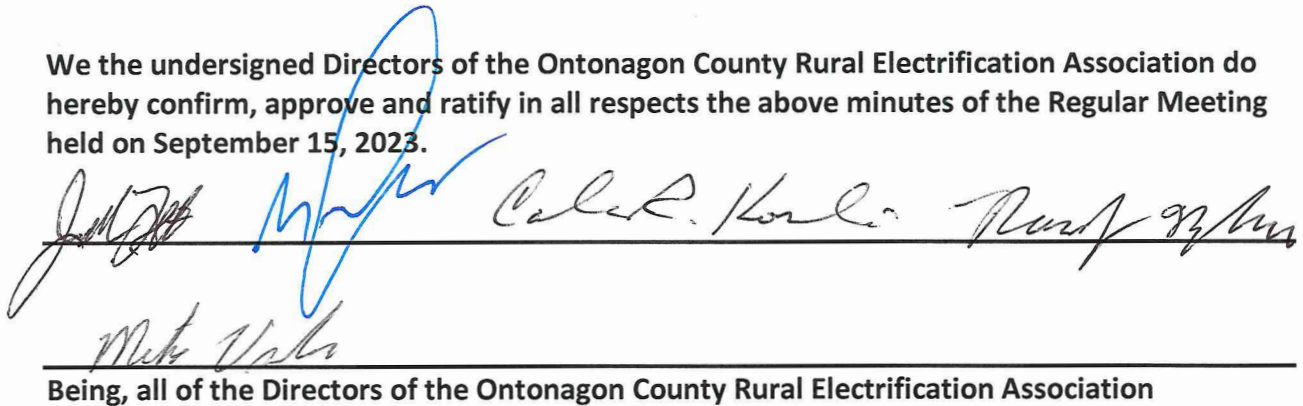 We the undersigned Directors of the Ontonagon County Rural Electrification Association do
hereby confirm, approve and ratify in all respects the above minutes of the Regular Meeting
held on September 15, 2023.
Being, all of the Directors of the Ontonagon County Rural Electrification Association